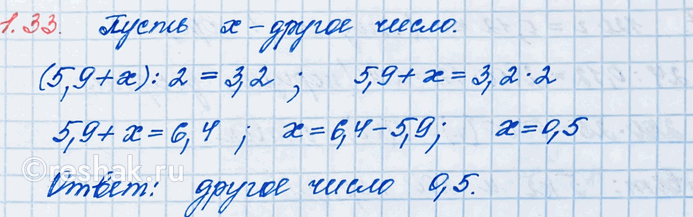 1.33. Пусть x - другое число.
(5,9+x):2=3,2; 5,9+x=3,2·2
5,9+x=6,4; x=6,4-5,9; x=0,5
Ответ: другое число 0,5.
©reshak.ru